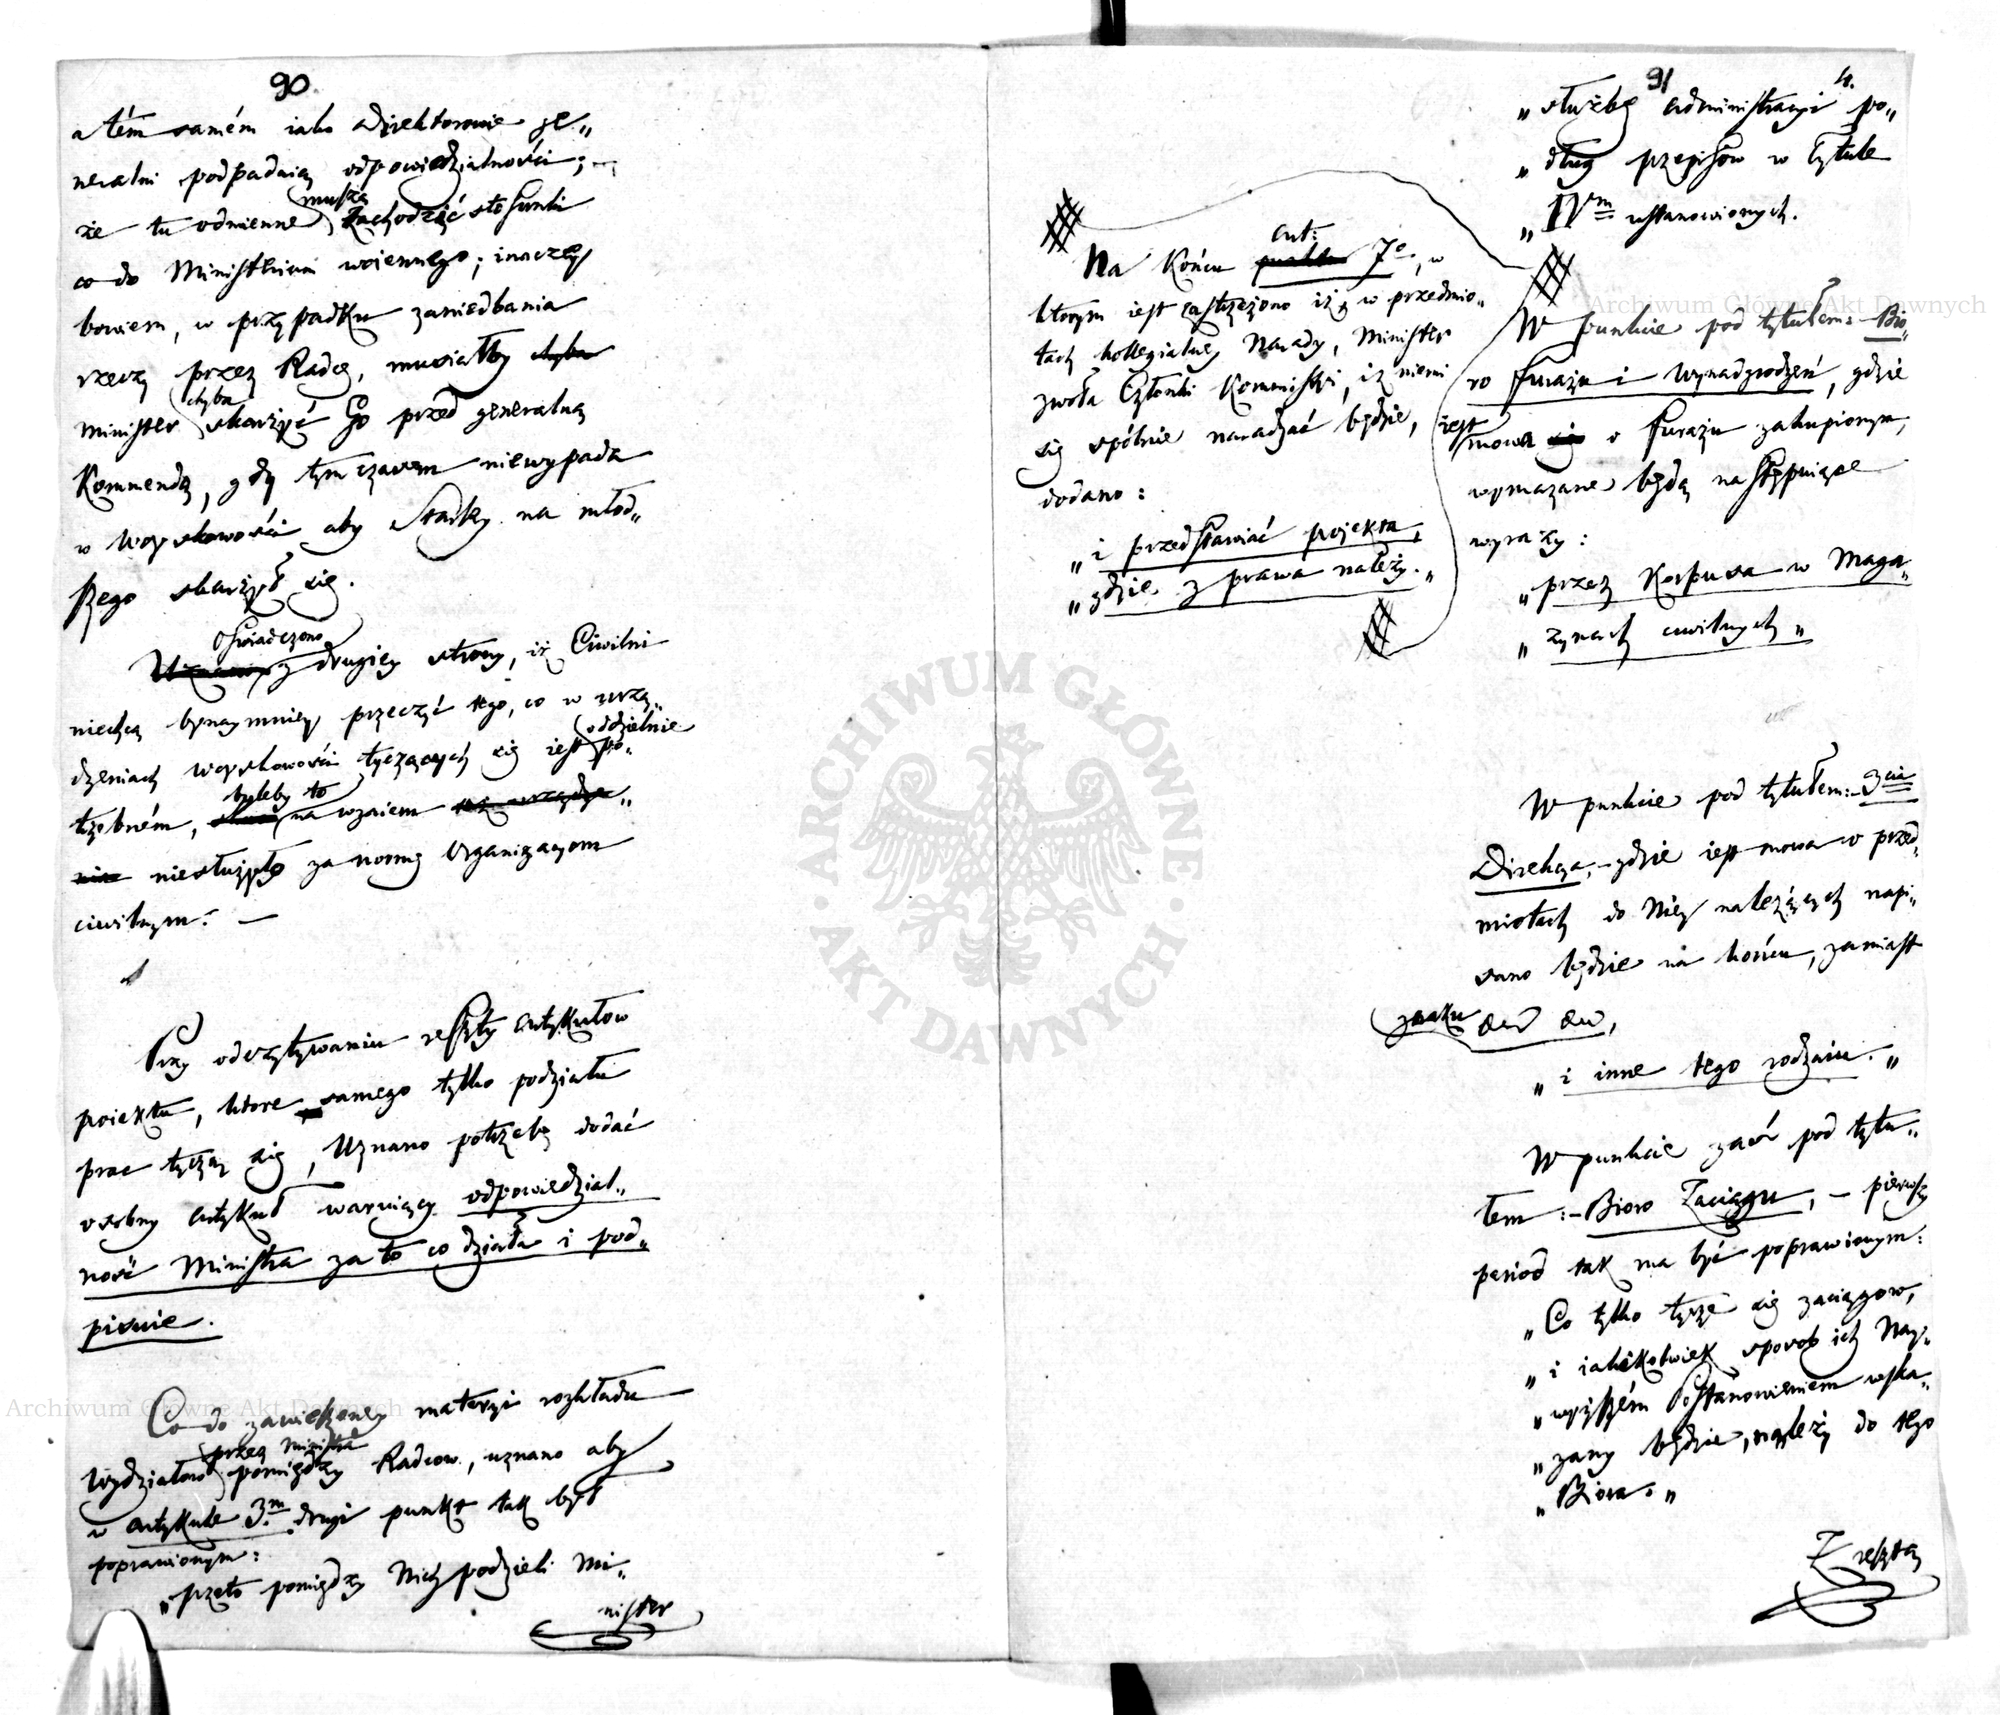 90.
a tém samém iako Direktorowie ge„
neralni podpadaią odpowiedzialności; —
muszą
że tu odmienne zachodzić stosunki
co do Ministerium woiennego; inaczey
bowiem, w przypadku zaniedbania
rzeczy przez Radcę, musiałby chyba
chyba
Minister skarżyć Go przed generalną
Kommendą, gdy tymczasem niewypada
w Woyskowości aby Starszy na młod„
szego skarżył się.
Oświadczono
z drugiey strony, iż Civilni
niechcą bynaymniey przeczyć tego, co w urzą„
oddzielnie
dzeniach woyskowości tyczących się iest po„
byleby to
trzebném, nawzaiem
niesłużyło za normę Organizacyom
ciwilnym. —
Przy odczytywaniu reszty Artykułow
proiektu, ktore samego tylko podziału
prac tyczą się, Uznano potrzebę dodać
osobny Artykuł waruiący odpowiedzial„
ność Ministra za to co działa i pod„
pisuie.
Co do zawieszoney materyi rozkładu
przez Ministra
Wydziałow pomiędzy Radcow, uznano aby
w Artykule 3.m drugi punkt tak był
poprawionym:
„przeto pomiędzy Nich podzieli Mi„
nister
91
4.
„służbę Administracyi po„
„dług przepisów w Tytule
„IVm ustanowionych.
Art:
Na Końcu punktu 7o, w
ktorym iest zastrzeżono iż w przedmio„
tach kollegialney Narady, Minister
zwoła Członki Kommissyi, iż niemi
się spólnie naradzać będzie,
dodano:
„i przedstawiać projekta,
„gdzie z prawa należy.„
W punkcie pod tytułem: Bio„
ro furażu i wynadgrodzeń, gdzie
iest
mowa o furażu zakupionym,
wymazane będą następuiące
wyrazy:
„przez Korpusa w Maga„
„zynach cywilnych„
W punkcie pod tytułem: 3cia
Direkcya, — gdzie iest mowa o przed„
miotach do Niey należących napi„
sano będzie na końcu, zamiast
znaku
„i inne tego rodzaiu.„
W punkcie zaś pod tytu„
łem: — Bioro Zaciągu, — pierwszy
period tak ma być poprawionym:
„Co tylko tycze się zaciągow,
„i iakikolwiek sposob ich Nay„
„wyższém Postanowieniem wska„
„zany będzie, należy do tego
„Biora.„
Zresztą
Archiwum Główne Akt Dawnych
Archiwum Główne Akt Dawnych
ARCHIWUM GŁÓWNE AKT DAWNYCH